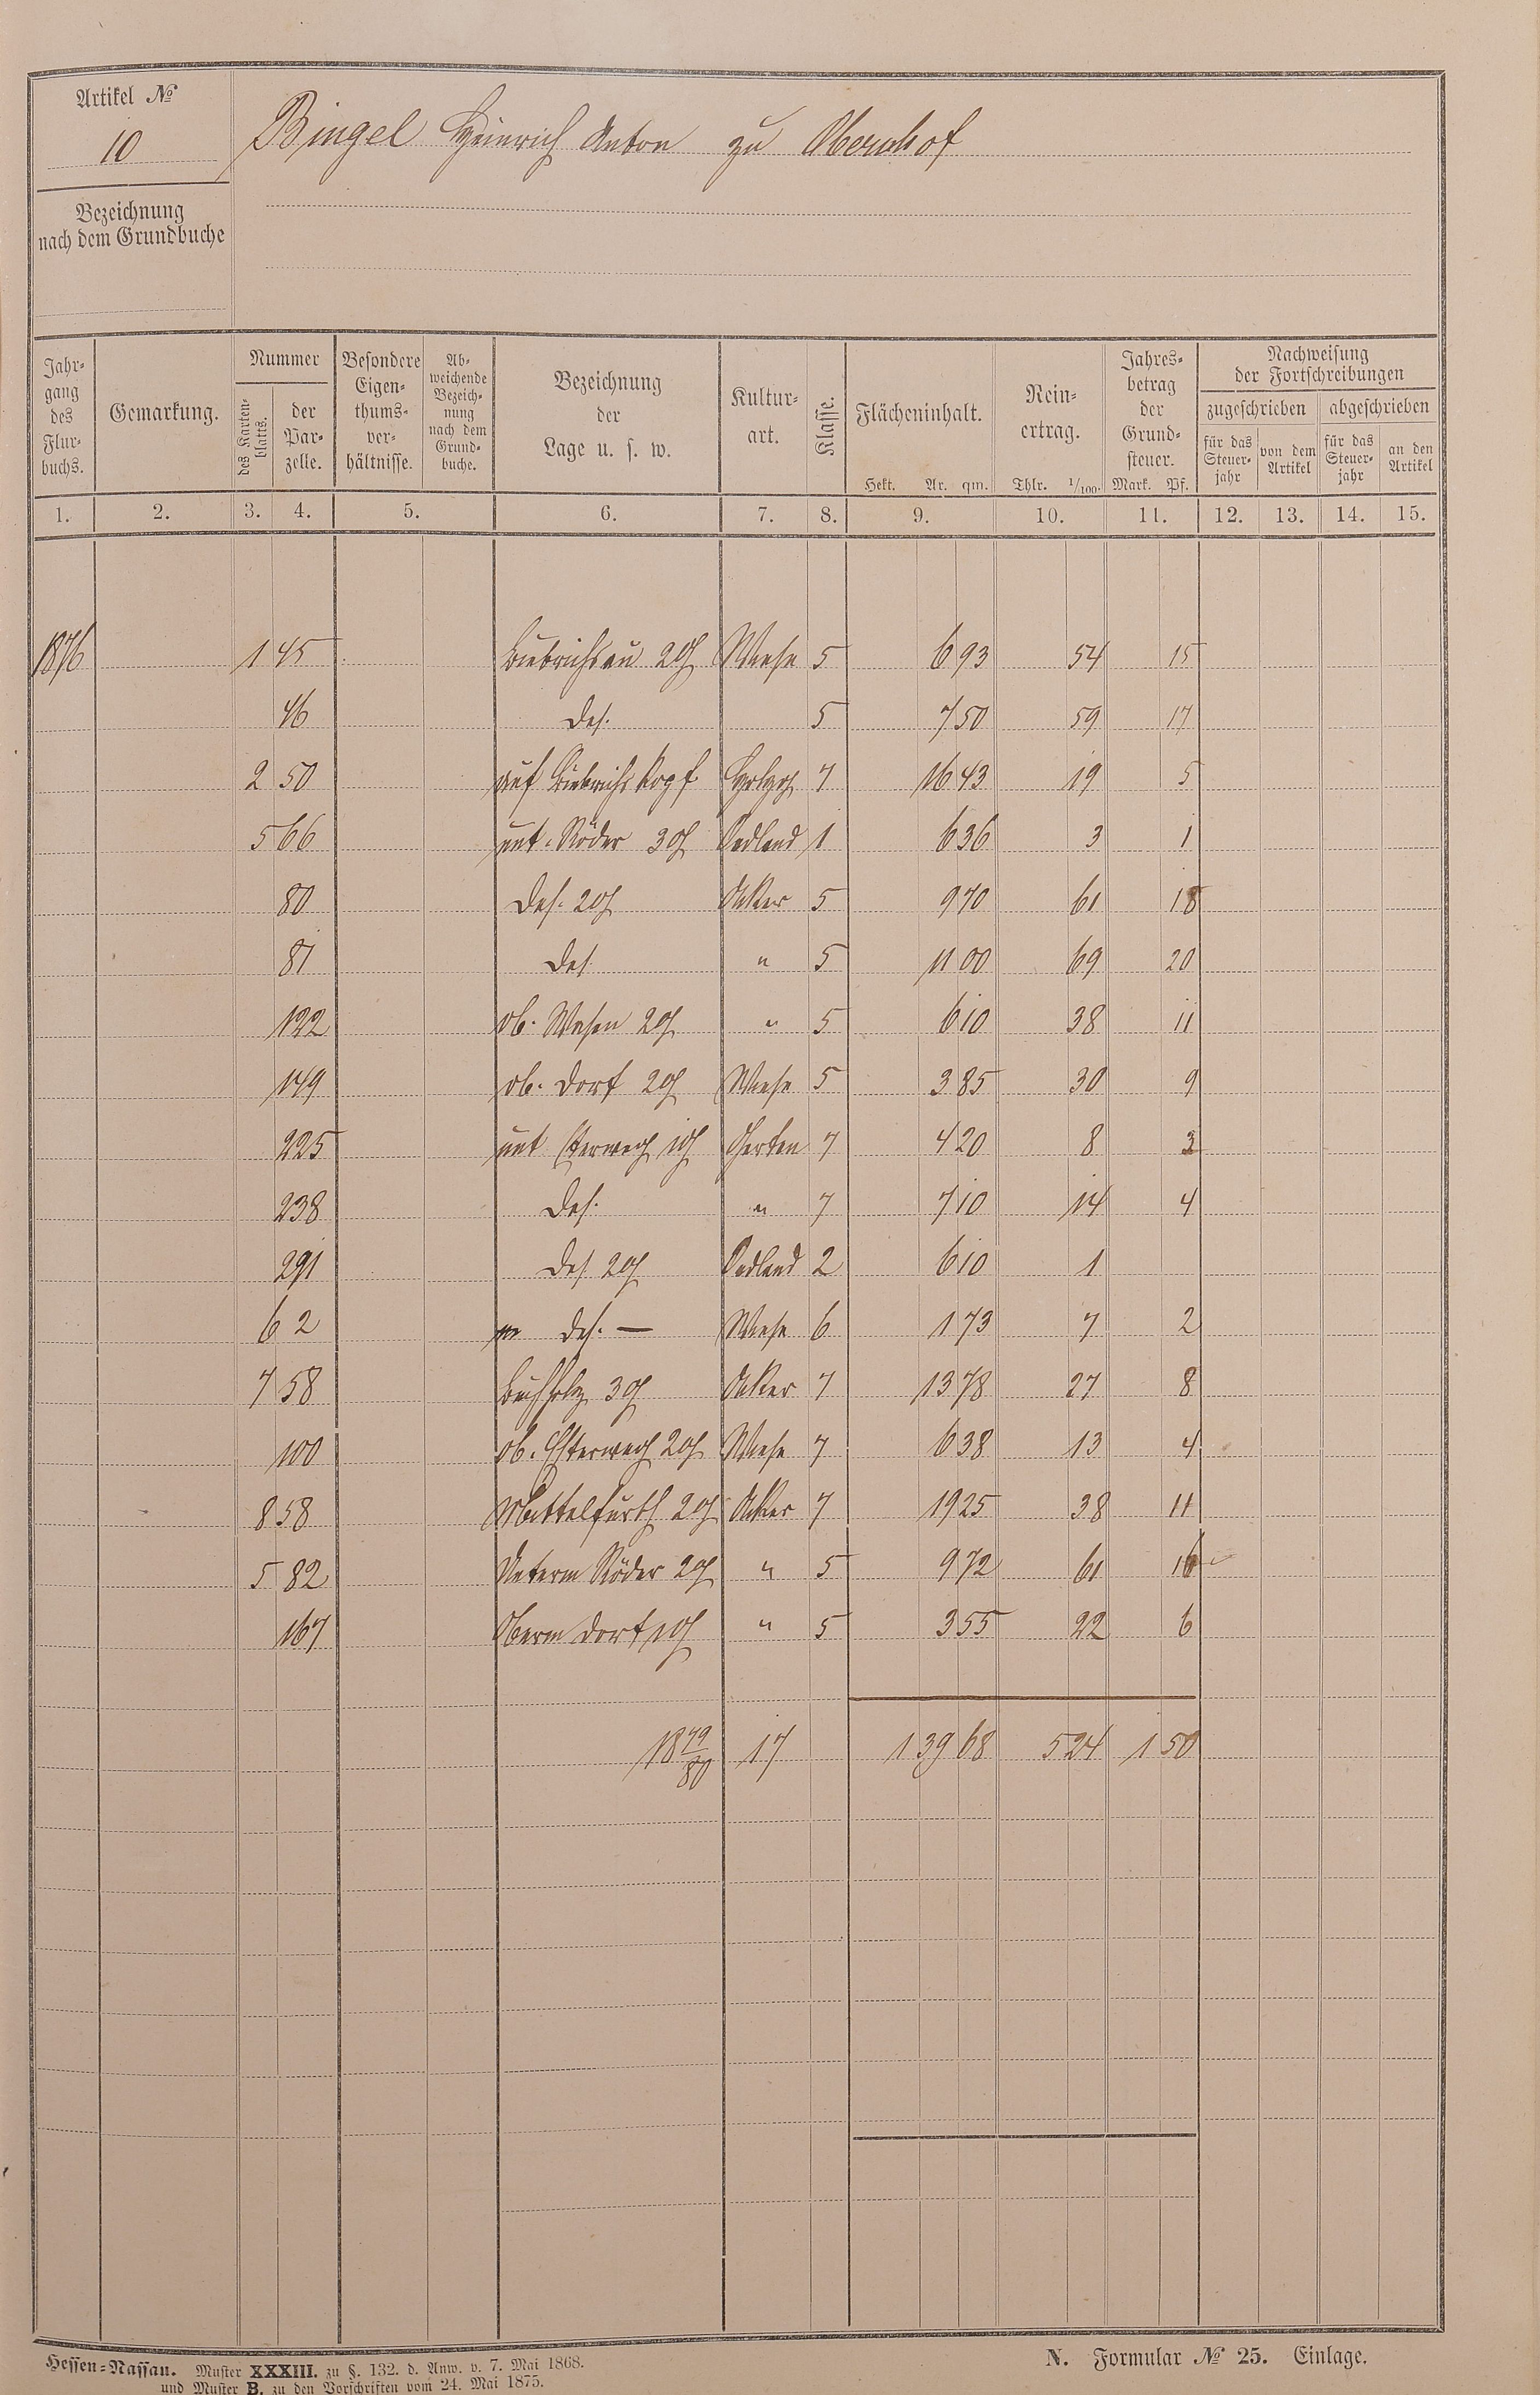 Artikel №
10
Bingel Heinrich Anton zu Obernhof
Bezeichnung
nach dem Grundbuche
Jahrgang des Flurbuchs.
Gemarkung.
Nummer
des Kartenblatts.
der Parzelle.
Besondere Eigenthumsverhältnisse.
Abweichende Bezeichnung nach dem Grundbuche.
Bezeichnung der Lage u. s. w.
Kulturart.
Klasse.
Flächeninhalt. Hekt. Ar. qm.
Reinertrag. Thlr. 1/100.
Jahresbetrag der Grundsteuer. Mark. Pf.
Nachweisung der Fortschreibungen
zugeschrieben abgeschrieben
für das Steuerjahr von dem Artikel für das Steuerjahr an den Artikel
1. 2. 3. 4. 5. 6. 7. 8. 9. 10. 11. 12. 13. 14. 15.
1876 1 45 2 Wiese 5 6 93 54 15
46 Des. 5 7 50 59 17
2 50 auf 7 16 43 19 5
5 66 unt. Röder 3 Oedland 1 6 36 3 1
80 Des. 2 Acker 5 9 70 61 18
81 Des. " 5 11 00 69 20
122 ob. Wesen 2 " 5 6 10 38 11
149 ob. Dorf 2 Wiese 5 3 85 30 9
225 unt 1 Garten 7 4 20 8 3
238 Des. " 7 7 10 14 4
291 Des. 2 Oedland 2 6 10 1
6 2 Des. — Wiese 6 1 73 7 2
7 58 Buchholz 3 Acker 7 13 78 27 8
100 ob. Esterweg 2 Wiese 7 6 38 13 4
8 58 Mittelfurth 2 Acker 7 19 25 38 11
5 82 Unterm Röder 2 " 5 9 72 61 16
167 Oberm Dorf 1 " 5 3 55 22 6
1879/80 17 1 39 68 5 24 1 50
Hessen-Nassau. Muster XXXIII. zu §. 132. d. Anw. v. 7. Mai 1868.
und Muster B. zu den Vorschriften vom 24. Mai 1875.
N. Formular № 25. Einlage.